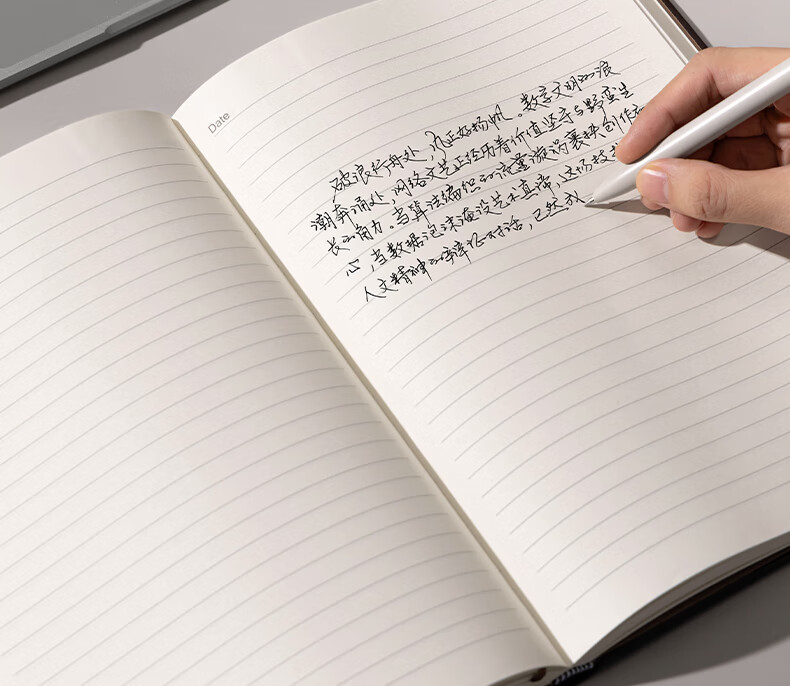 Date
破浪行舟处,风正好扬帆。数字文明的浪
潮奔涌处,网络文艺正经历着价值坚守与野蛮生
长的角力。当算法编织的流量漩涡裹挟创作初
心,当数据泡沫淹没艺术真谛,这场技
人文精神的辩证对话,已然成